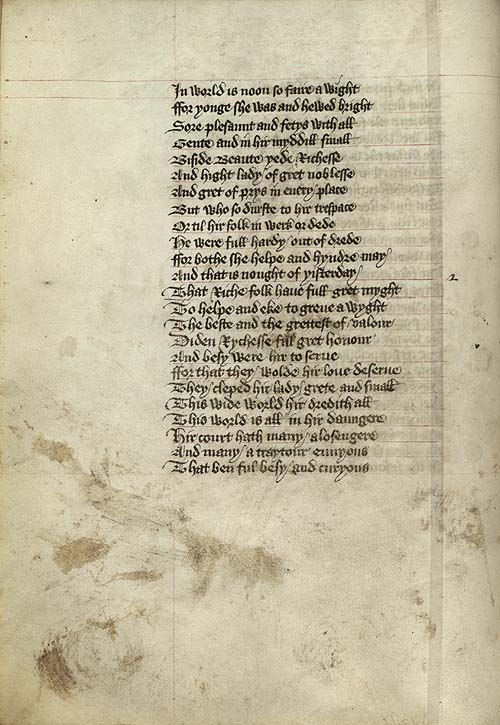 In world is noon so faire a wight
ffor yonge she was and hewed bright
Sore plesaunt and fetys with all
Gente and in hir myddill small
Biside Beaute yede Richesse
And hight lady of gret noblesse
And gret of prys in euery place
But who so durste to hir trespace
Or til hir folk in werk or dede
He were full hardy out of drede
ffor bothe she helpe and hyndre may
And that is nought of yisterday
That Riche folk haue full gret myght
To helpe and eke to greue a wyght
The beste and the grettest of valour
Diden Rychesse ful gret honour
And besy were hir to serue
ffor that they wolde hir loue deserue
They cleped hir lady grete and small
This wide world hir dredith all
This world is all in hir daungere
Hir court hath many a losengere
And many a traytour enuyous
That ben ful besy and curyous
2